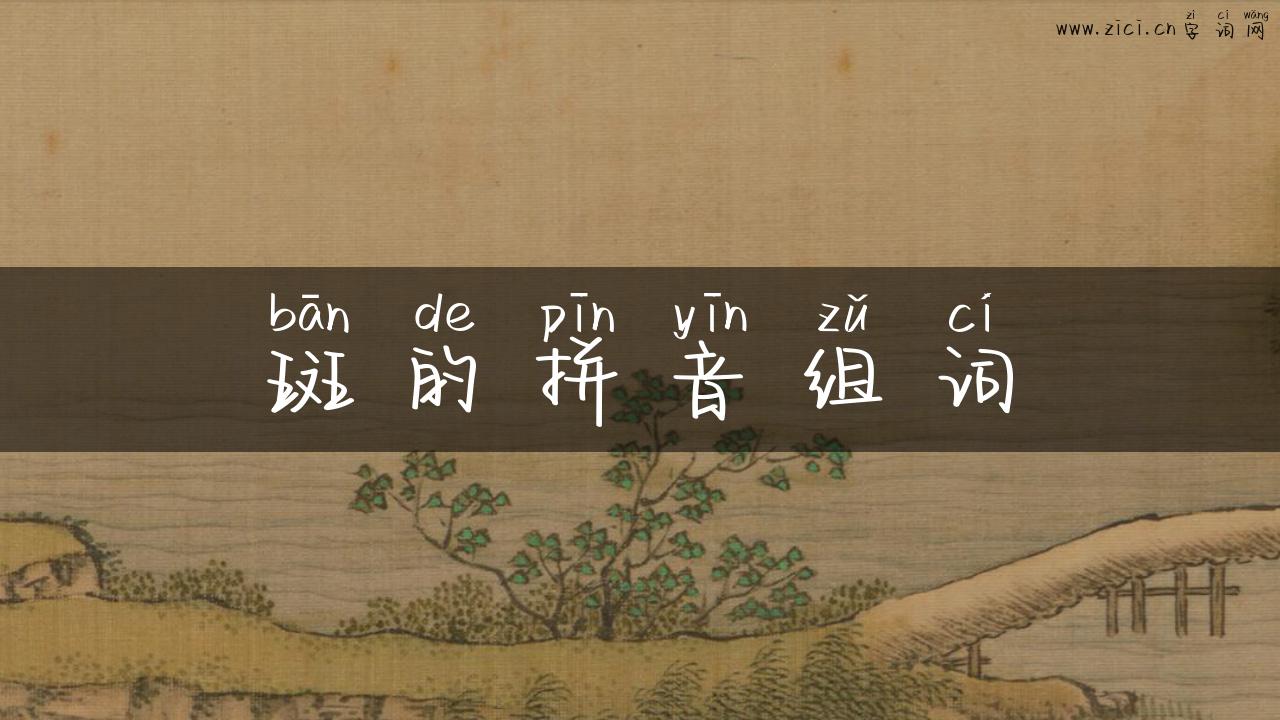 zì cí wǎng
www.zici.cn 字词网
bān de pīn yīn zǔ cí
斑的拼音组词